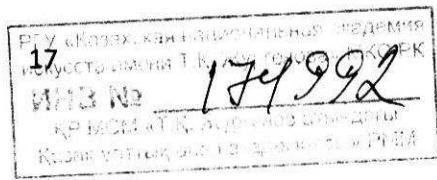 РГУ «Казахская национальная академия
искусств имени Т.К. Жургенова» МКС РК
17
ИНВ № 174992
ҚР МСМ «Т.Қ.
Қазақ ұлттық өнер академиясы» РММ